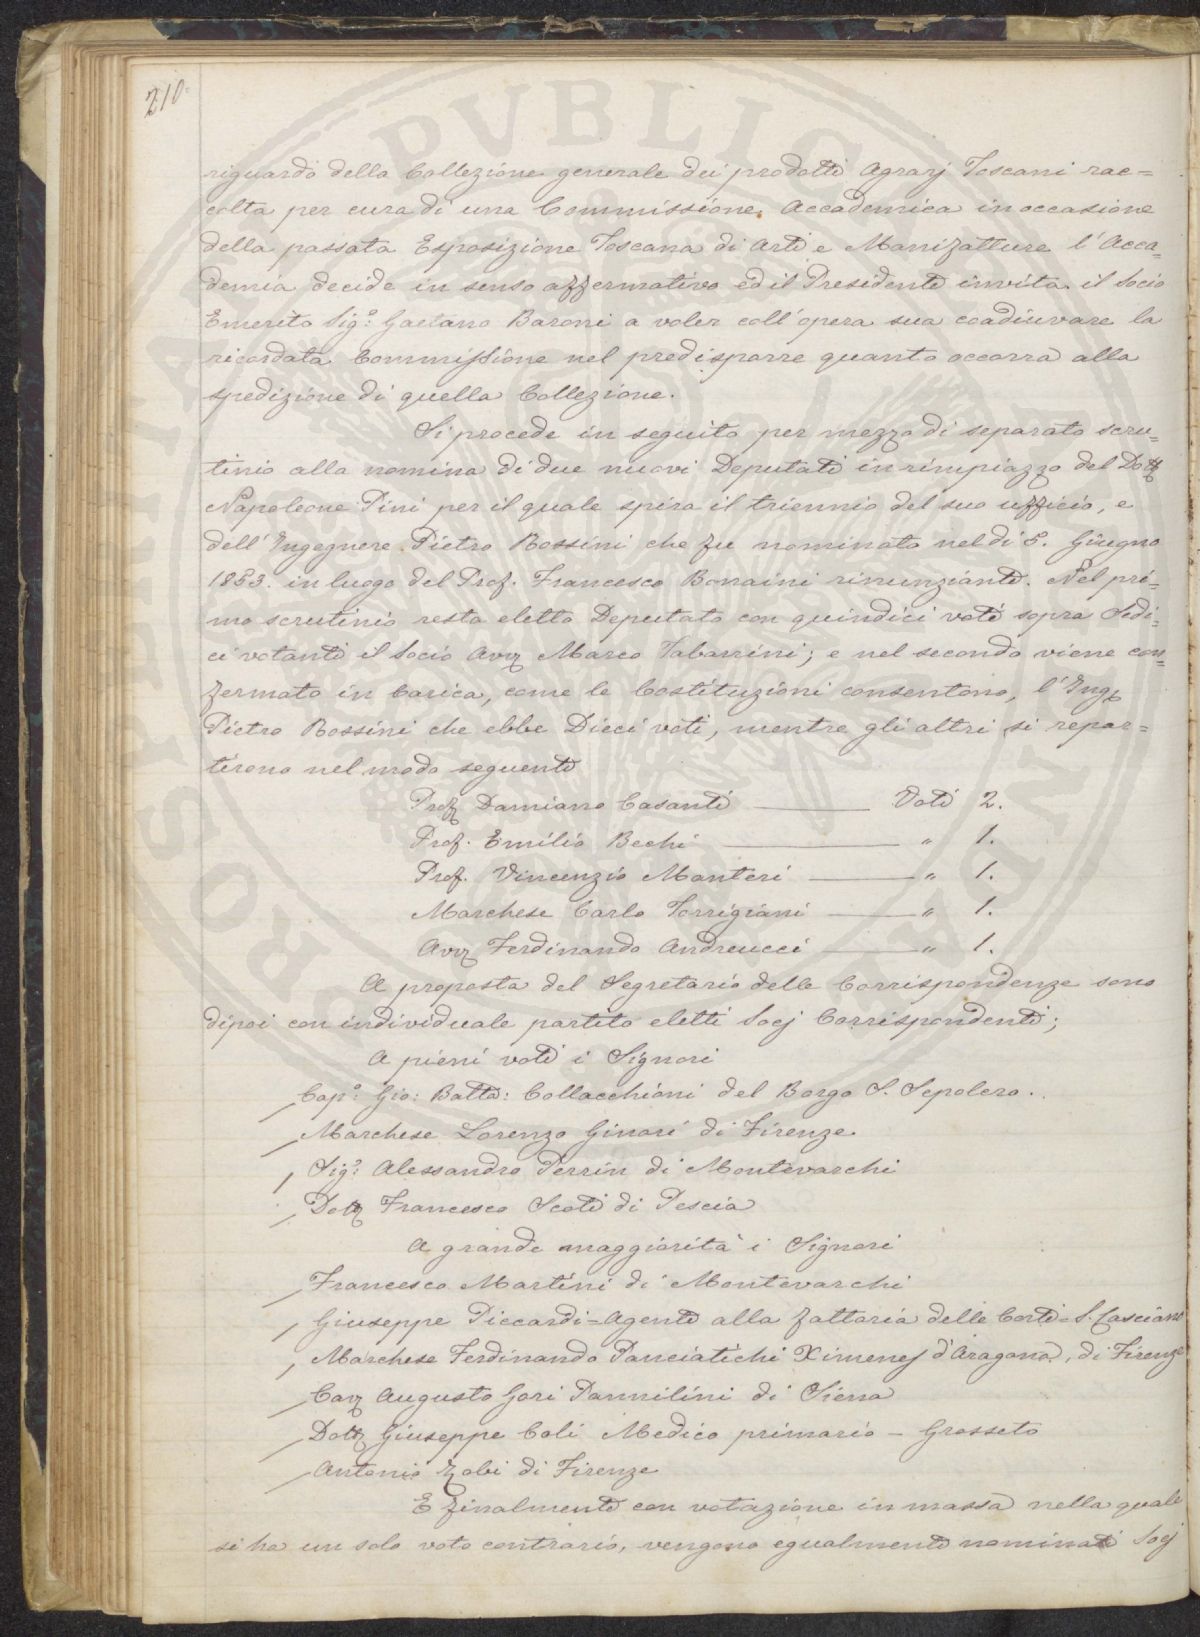 210.
riguardo della Collezione generale dei prodotti Agrarj Toscani rac=
colta per cura di una Commissione Accademica in occasione
della passata Esposizione Toscana di Arti e Manifatture l'Acca=
demia decide in senso affermativo ed il Presidente invita il Socio
Emerito Sigr. Gaetano Baroni a voler coll'opera sua coadiuvare la
ricordata Commissione nel predisporre quanto occorra alla
spedizione di quella Collezione.
Si procede in seguito per mezzo di separato scru=
tinio alla nomina di due nuovi Deputati in rimpiazzo del Dott
Napoleone Pini per il quale spira il triennio del suo ufficio, e
dell'Ingegnere Pietro Rossini che fu nominato nel dì 5. Giugno
1853. in luogo del Prof. Francesco Bonaini rinunziante. Nel pri=
mo scrutinio resta eletto Deputato con quindici voti sopra Sedi=
ci votanti il Socio Avv Marco Tabarrini; e nel secondo viene con=
fermato in Carica, come le Costituzioni consentono, l'Ing
Pietro Rossini che ebbe Dieci voti, mentre gli altri si repar=
tirono nel modo seguente
Prof Damiano Casanti ——— Voti 2.
Prof. Emilio Bechi ——— " 1.
Prof. Vincenzio Manteri ——— " 1.
Marchese Carlo Torrigiani ——— " 1.
Avv Ferdinando Andreucci ——— " 1.
A proposta del Segretario delle Corrispondenze sono
dipoi con individuale partito eletti Socj Corrispondenti;
A pieni voti i Signori
Capo: Gio: Batta: Collacchioni del Borgo S. Sepolcro.
Marchese Lorenzo Ginori di Firenze
Sigr: Alessandro Perrin di Montevarchi
Dott Francesco Scoti di Pescia
A grande maggiorità i Signori
Francesco Martini di Montevarchi
Giuseppe Piccardi=Agente alla fattoria delle Corti=S. Casciano
Marchese Ferdinando Panciatichi Ximenes d'Aragona, di Firenze
Cav Augusto Gori Pannilini di Siena
Dott Giuseppe Coli Medico primario — Grosseto
Antonio Zobi di Firenze
E finalmente con votazione in massa nella quale
si ha un solo voto contrario, vengono egualmente nominati Socj
PVBLICA
PROSPERITATIS